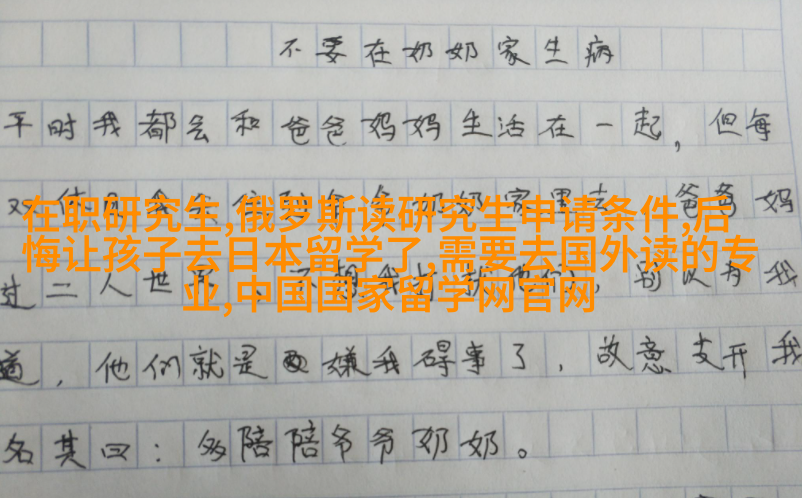 不要在奶奶家生病
平时我都会和爸爸妈妈生活在一起，但每
在职研究生,俄罗斯读研究生申请条件,后
悔让孩子去日本留学了,需要去国外读的专
业,中国国家留学网官网
爸爸妈
过二人世
道，他们就是嫌我碍事了，故意支开我
名其曰：多陪陪爷爷奶奶。